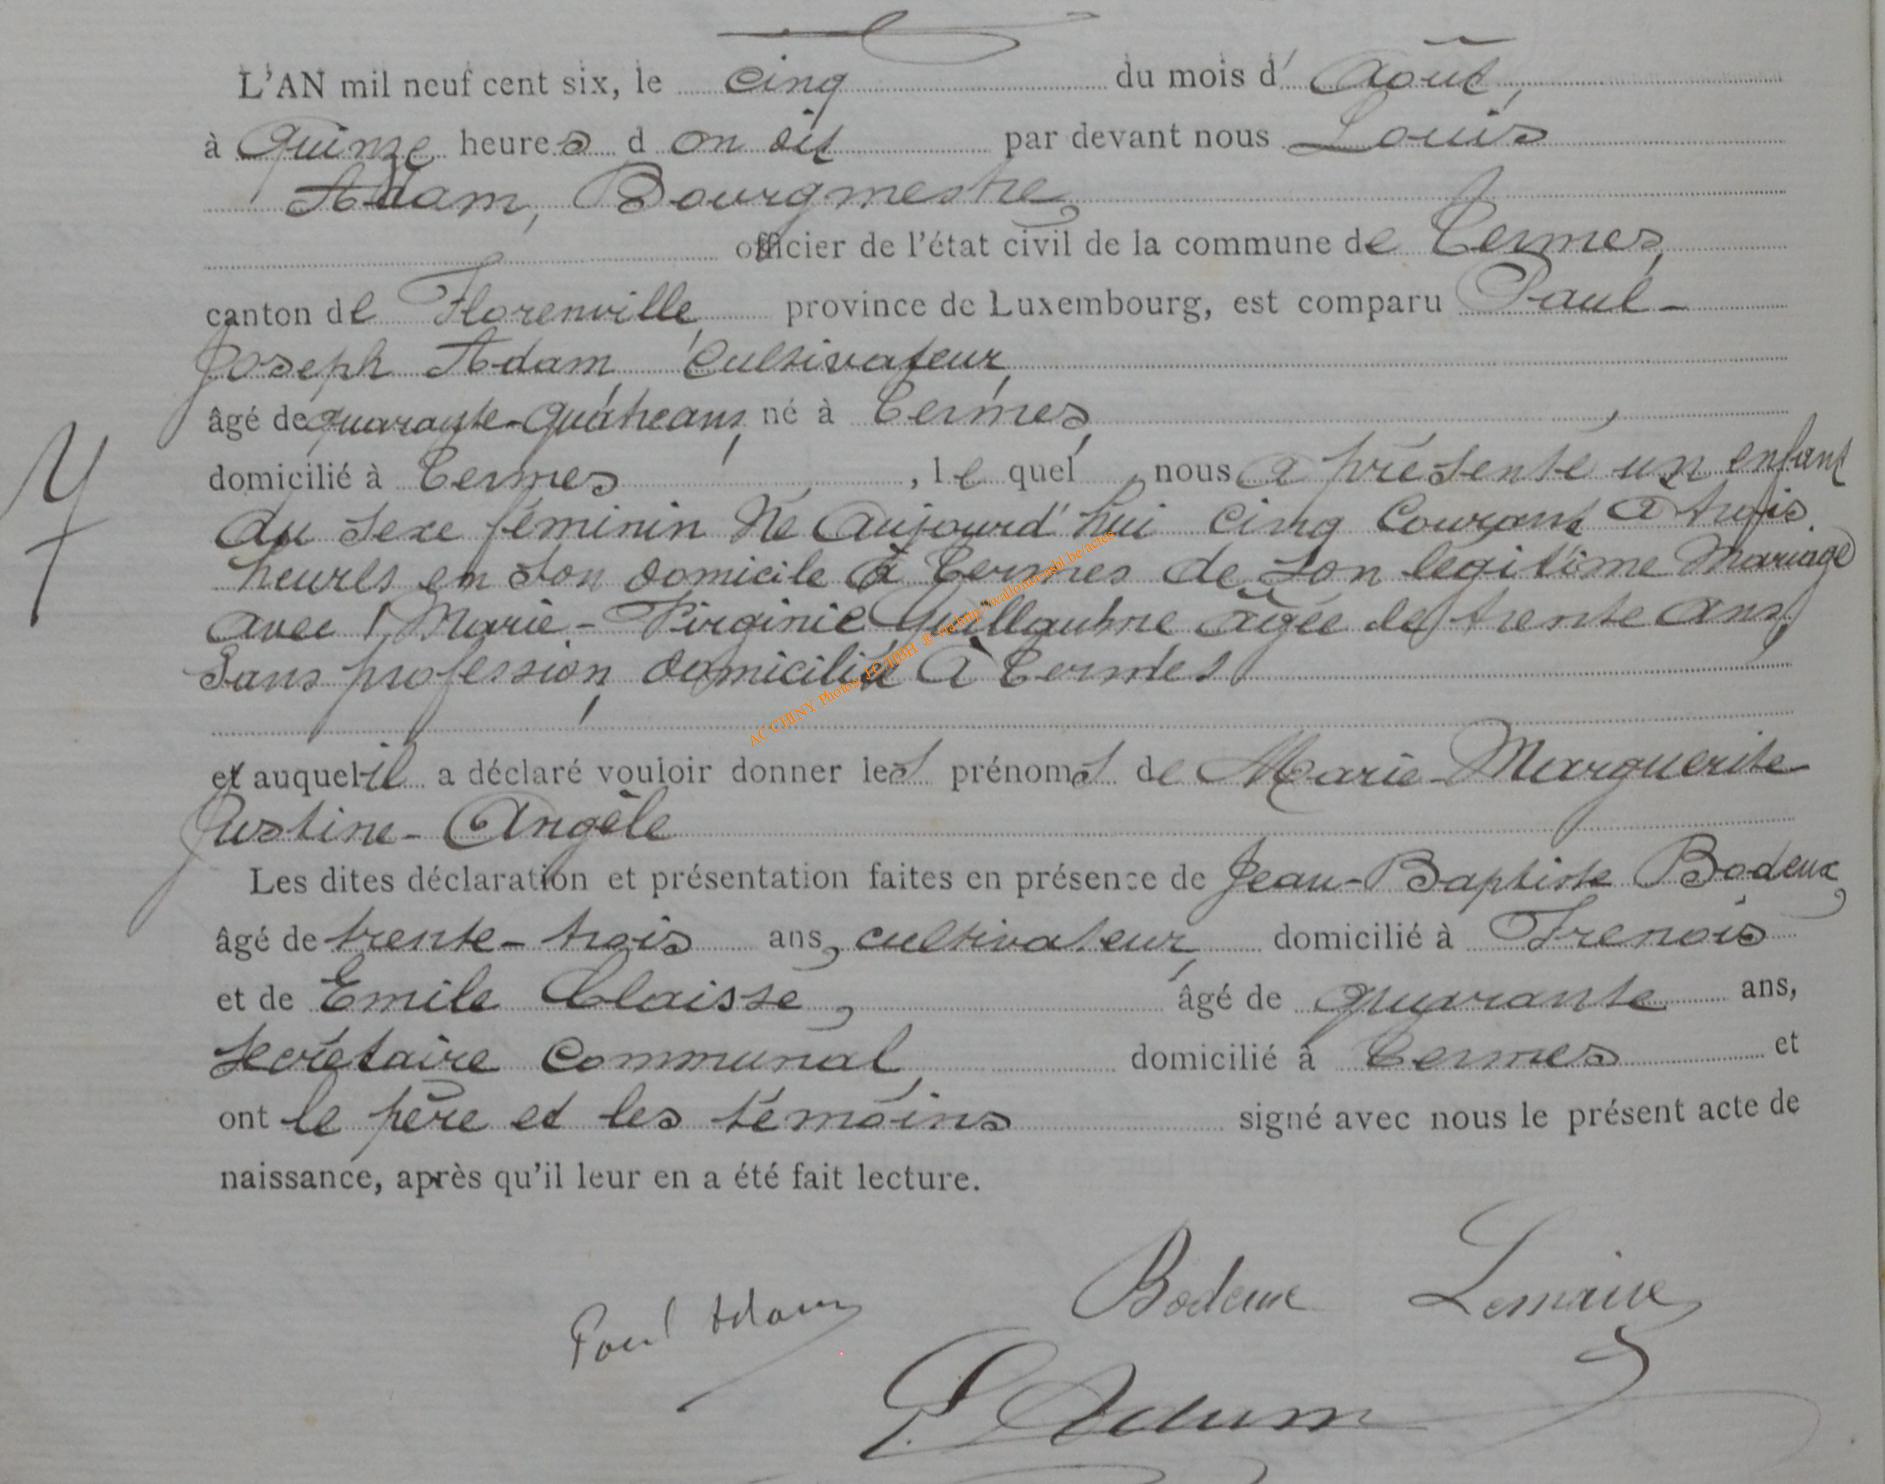 L'AN mil neuf cent six, le cinq du mois d' Août,
à Quinze heures d on dit par devant nous Louis
Adam, Bourgmestre,
officier de l'état civil de la commune de Termes,
canton de Florenville, province de Luxembourg, est comparu Paul-
Joseph Adam, Cultivateur,
âgé de quarante-quatre ans, né à Termes,
domicilié à Termes, le quel, nous a présenté un enfant
du sexe féminin Né Aujourd'hui cinq Courant à trois
heures en son domicile à Termes de son légitime Mariage
avec Marie-Virginie Guillaume âgée de trente ans,
Sans profession, domiciliée à Termes
AC CHINY Photos
et auquel il a déclaré vouloir donner les prénoms de Marie-Marguerite
Justine-Angèle
Les dites déclaration et présentation faites en présence de Jean-Baptiste Bodeux,
âgé de trente-trois ans, cultivateur, domicilié à Frenois
et de Emile Claisse, âgé de quarante ans,
secrétaire communal, domicilié à Termes et
ont le père et les témoins signé avec nous le présent acte de
naissance, après qu'il leur en a été fait lecture.
Bodeux Lemaire
Paul Adam
L. Adam